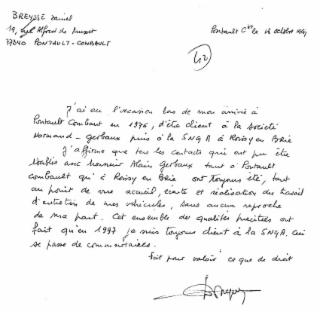 BREYSSE Daniel
19, rue Alfred de Musset
77340 PONTAULT-COMBAULT
Pontault Cult le 16 octobre
42
J'ai eu l'occasion lors de mon arrivée à
Pontault Combault en 1976, d'être client à la société
Normand-Gerbaux puis à la SNGA à Roissy en Brie
J'affirme que tous les contacts qui ont pu être
établis avec monsieur Alain Gerbaux tant à Pontault
Combault qu'à Roissy en Brie ont toujours été, tant
au point de vue accueil, et réalisation des travail
d'entretien de mes véhicules, sans aucun reproche
de ma part. Cet ensemble des qualités précitées ont
fait qu'en 1997 je suis toujours client à la SNGA, ceci
se passe de commentaires.
fait pour valoir ce que de droit